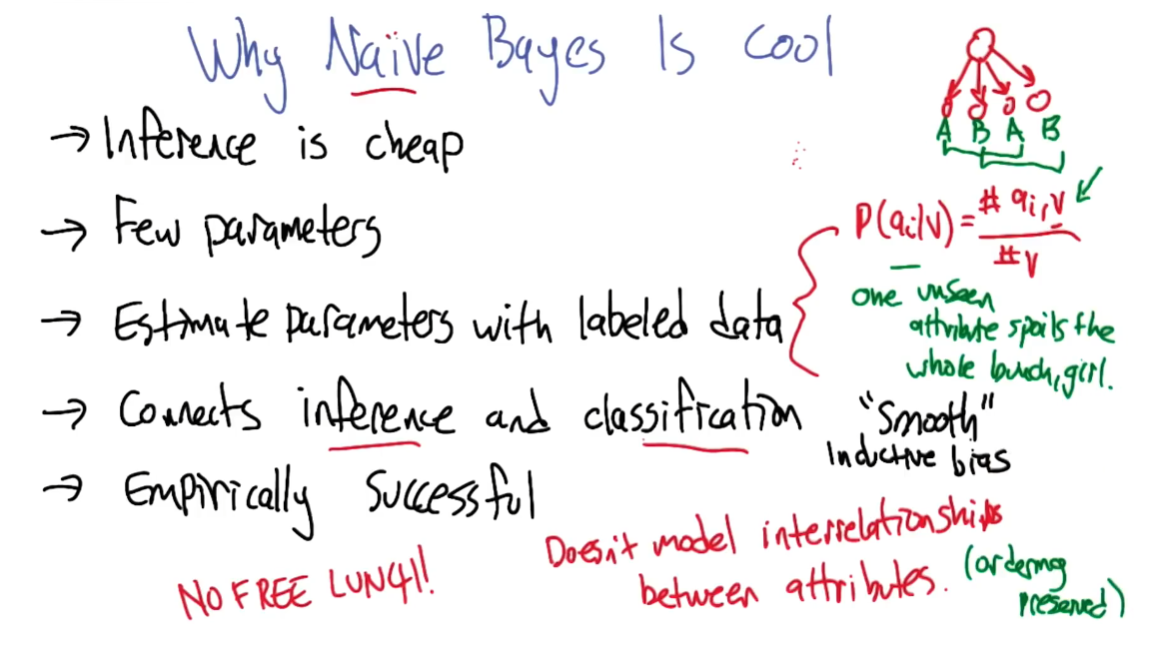 Why Naïve Bayes Is Cool
→ Inference is cheap
→ Few parameters
→ Estimate parameters with labeled data
→ Connects inference and classification
→ Empirically successful
NO FREE LUNCH!
A B A B
P(aᵢ|V) = # aᵢ, V / # V
one unseen
attribute spoils the
whole bunch, girl.
"Smooth"
Inductive bias
Doesn't model interrelationships
between attributes.
(ordering
preserved)